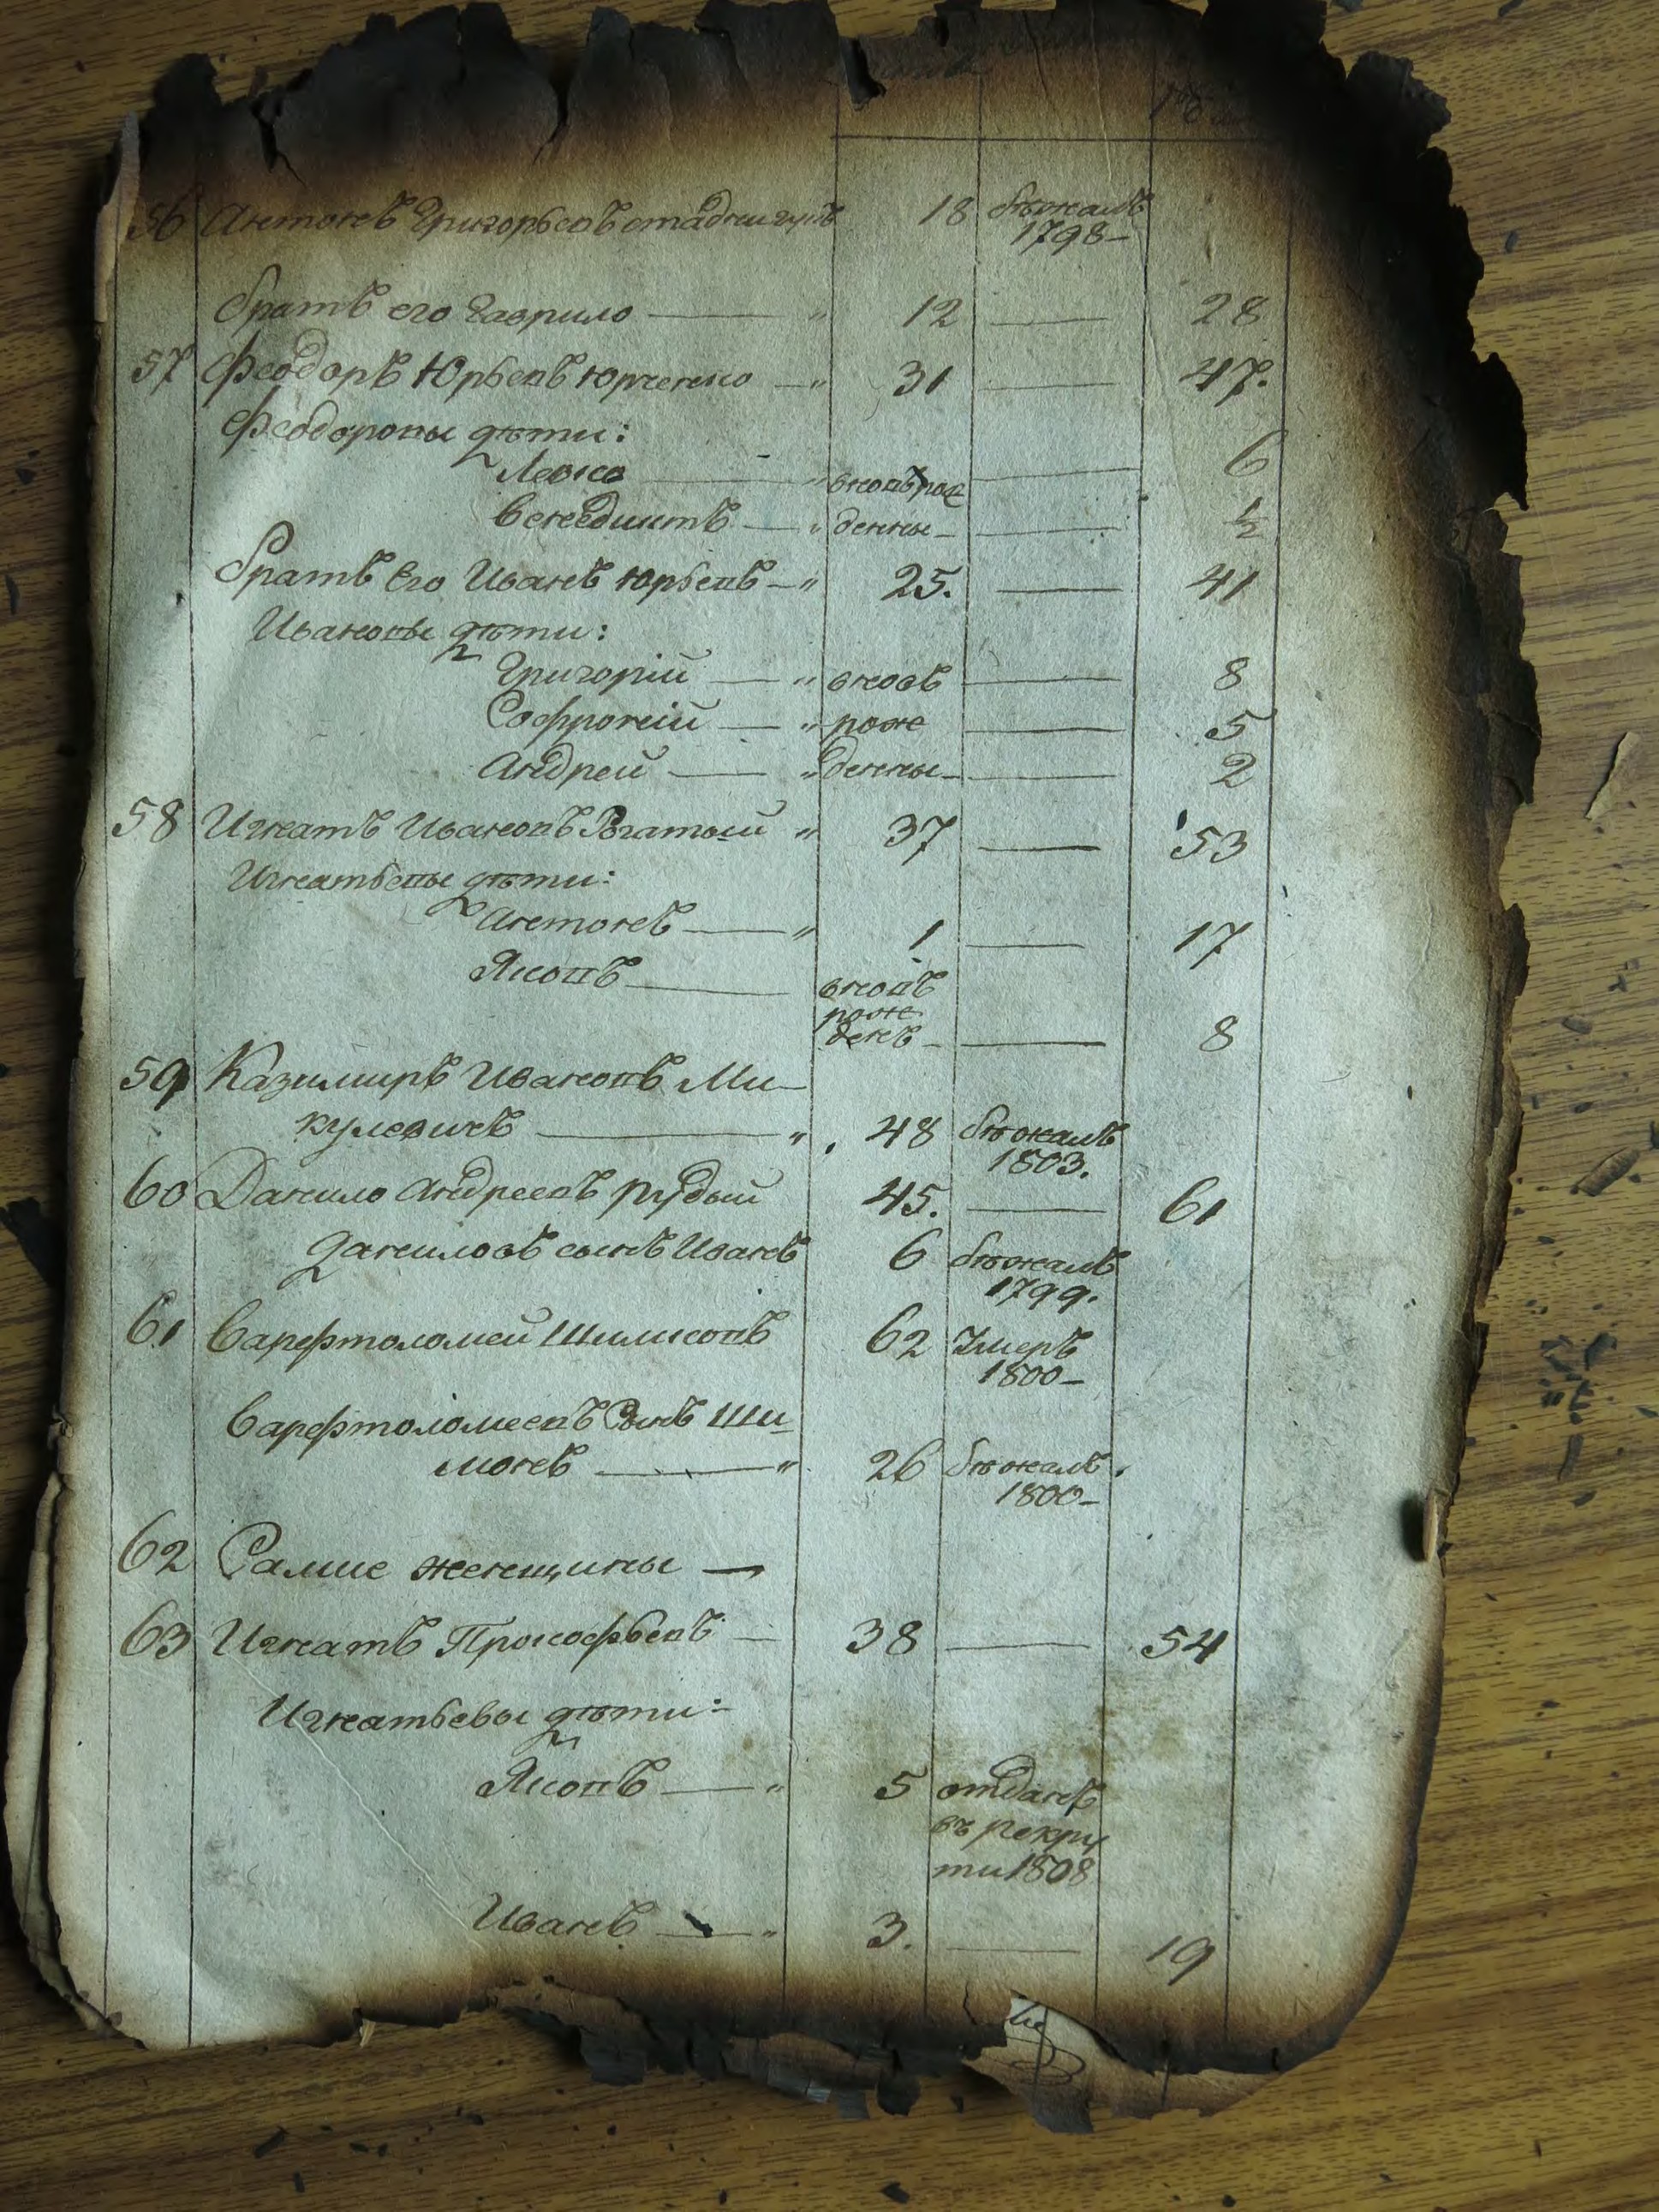 56 Антонъ Григорьевъ 18 бѣжалъ
1798 —
братъ его Гаврило — " 12 — 28
57 Феодоръ Юрьевъ Юрченко — " 31 — 47.
Феодоровы дѣти:
Левко — " вновь рож — 6
Венедиктъ — " денны — — ½
братъ его Иванъ Юрьевъ — " 25. — 41
Ивановы дѣти:
Григорій — " вновь — 8
Софроній — " рож — 5
Андрей — " денны — — 2
58 Игнатъ Ивановъ Рогатый " 37 — 53
Игнатьевы дѣти:
Антонъ — " 1 — 17
Яковъ — вновь
рож
денъ — — 8
59 Казимиръ Ивановъ Ми-
кулевичъ — " 48 бѣжалъ
1803.
60 Данило Андреевъ рудый 45. — 61
Даниловъ сынъ Иванъ 6 бѣжалъ
1799.
61 Варфтоломей Шимковъ 62 Умеръ
1800 —
Варфтоломеевъ Сынъ Ши-
монъ — " 26 бѣжалъ.
1800 —
62 Самие женщины —
63 Игнатъ Прокофьевъ — 38 — 54
Игнатьевы дѣти:
Яковъ — " 5 отданъ
въ рекру
ти 1808
Иванъ — " 3. — 19